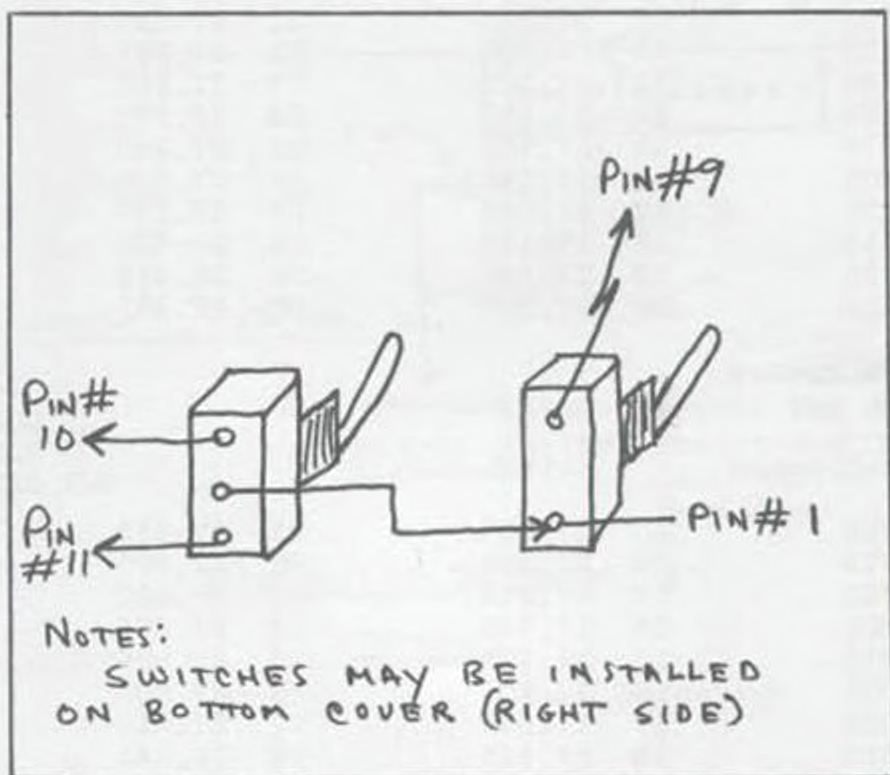 PIN#9
PIN#
10
PIN
#11
PIN# 1
NOTES:
SWITCHES MAY BE INSTALLED
ON BOTTOM COVER (RIGHT SIDE)